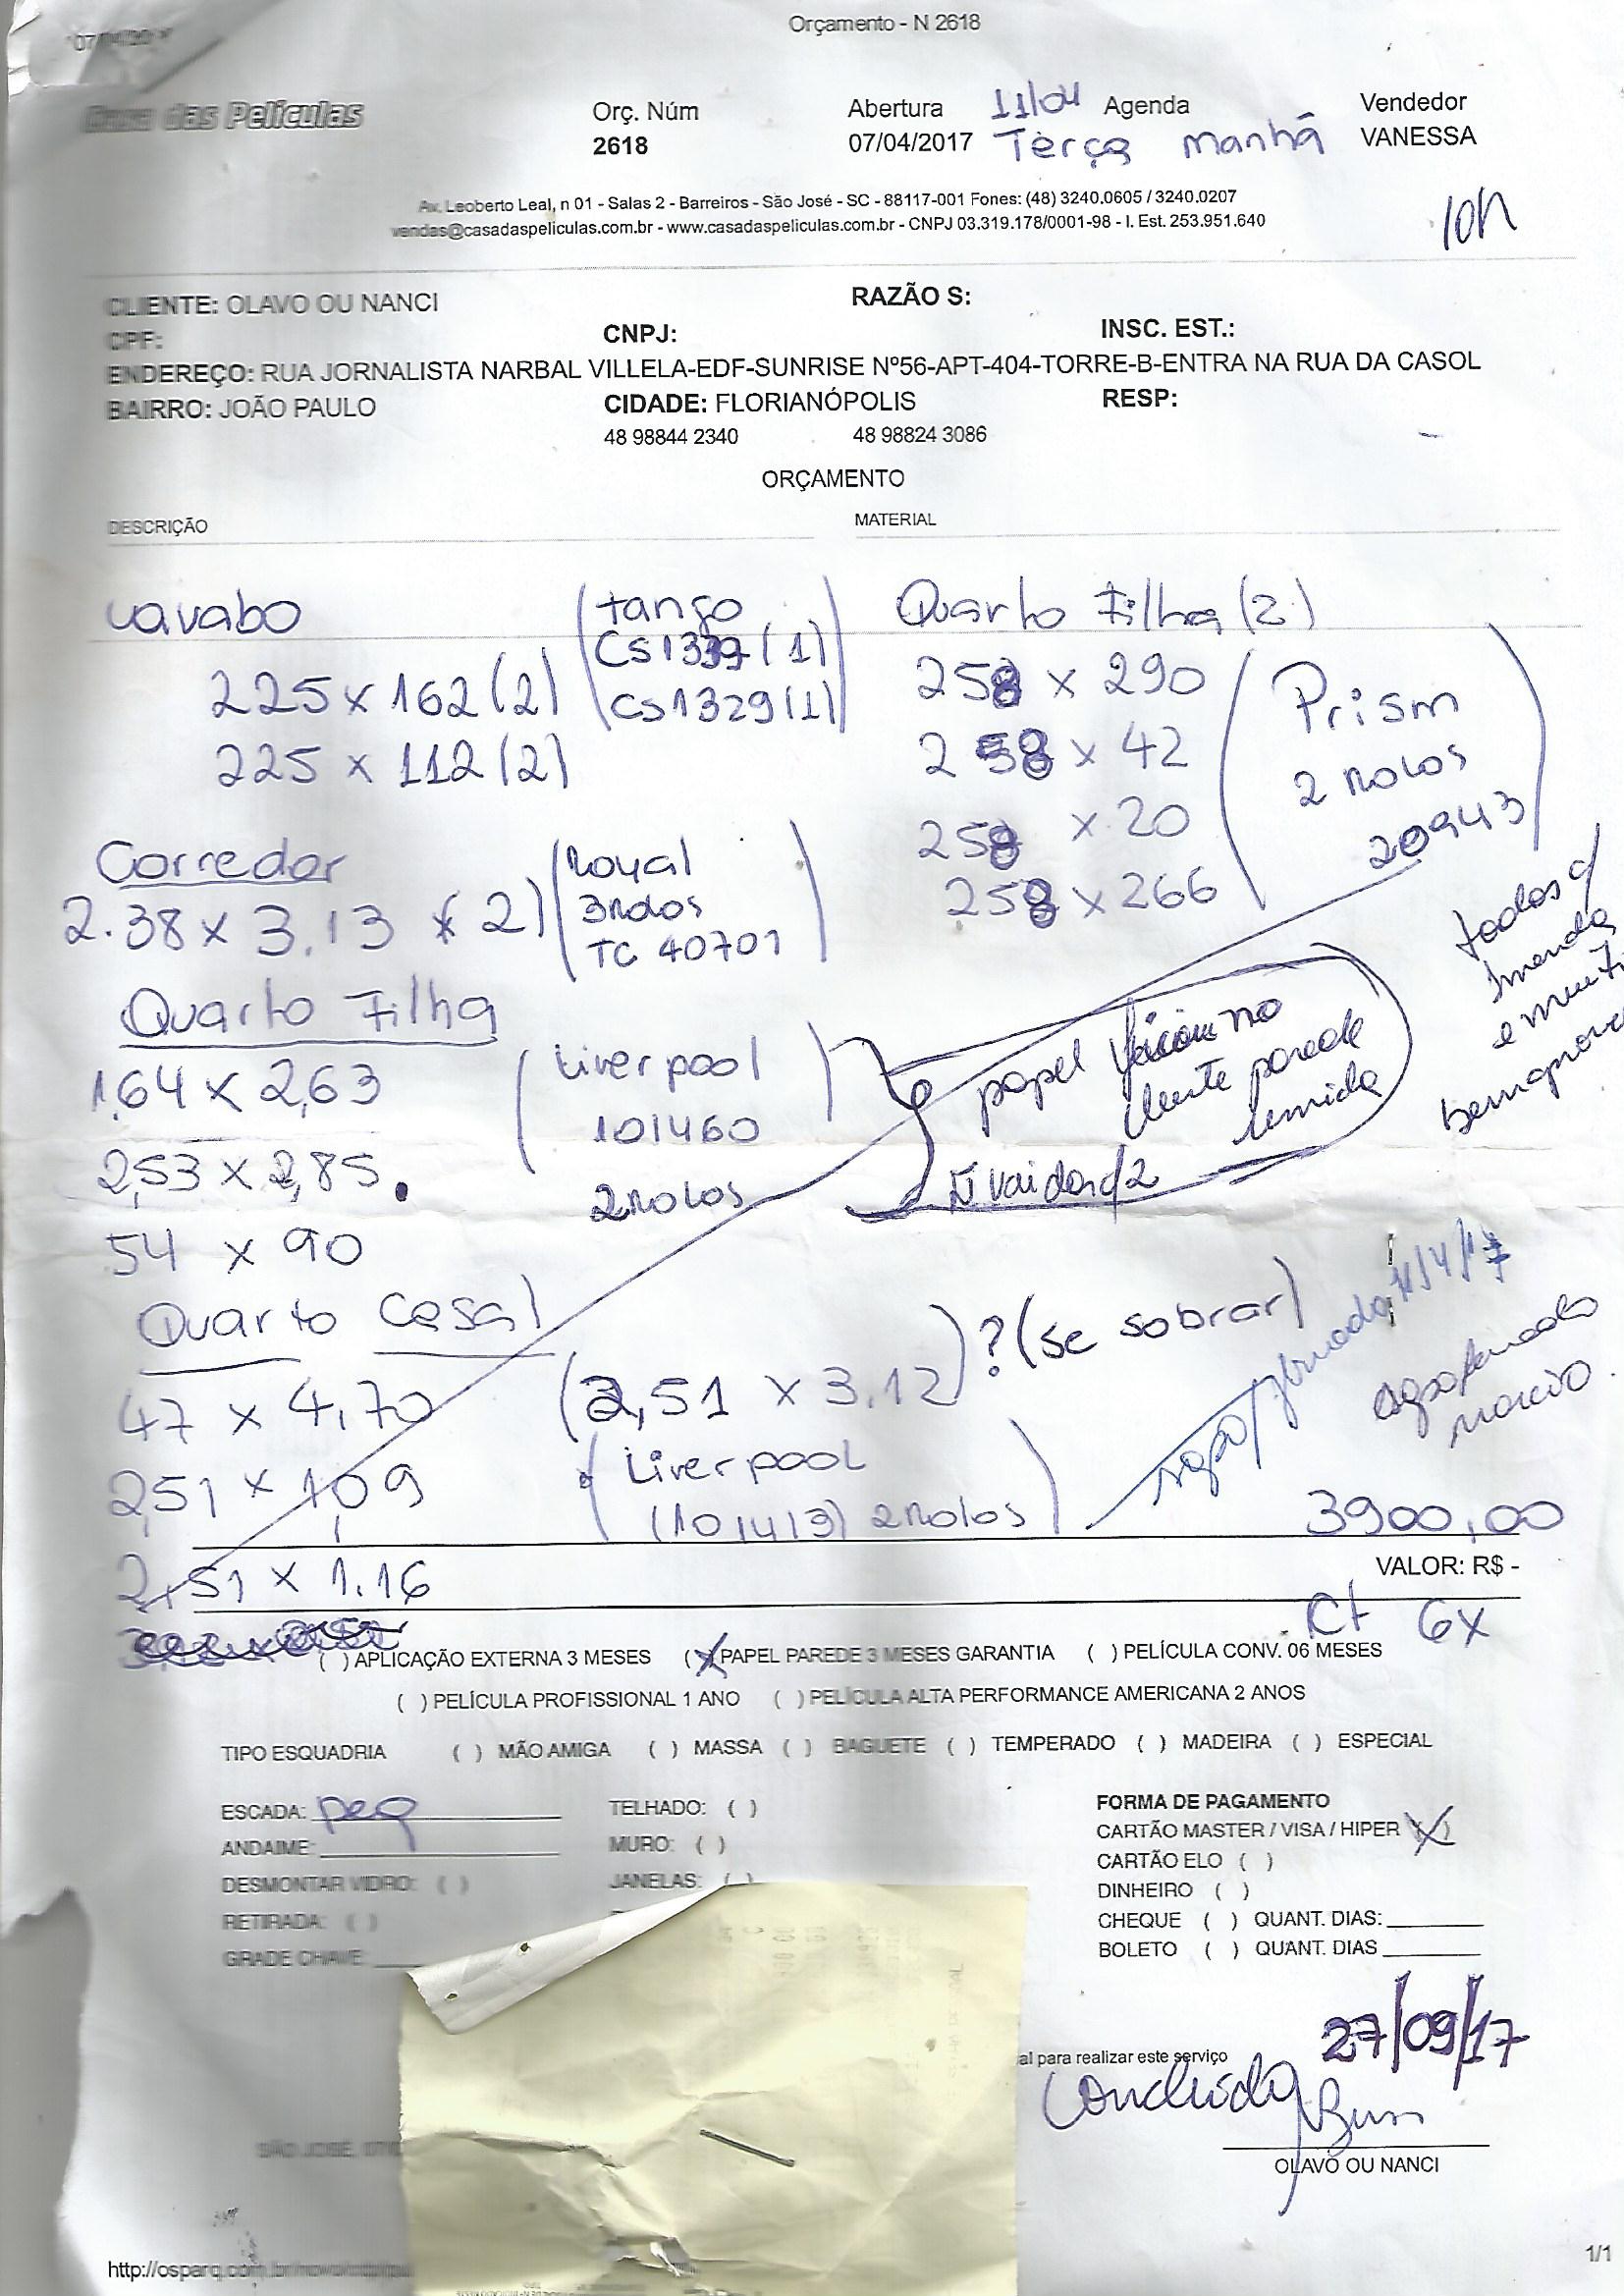 Orçamento - N 2618
Casa das Películas
Orç. Núm
2618
Abertura
07/04/2017
11/04
Agenda
Terça manhã
Vendedor
VANESSA
10h
Av. Leoberto Leal, n 01 - Salas 2 - Barreiros - São José - SC - 88117-001 Fones: (48) 3240.0605 / 3240.0207
vendas@casadaspeliculas.com.br - www.casadaspeliculas.com.br - CNPJ 03.319.178/0001-98 - I. Est. 253.951.640
CLIENTE: OLAVO OU NANCI
RAZÃO S:
CPF:
CNPJ:
INSC. EST.:
ENDEREÇO: RUA JORNALISTA NARBAL VILLELA-EDF-SUNRISE Nº56-APT-404-TORRE-B-ENTRA NA RUA DA CASOL
BAIRRO: JOÃO PAULO
CIDADE: FLORIANÓPOLIS
RESP:
48 98844 2340
48 98824 3086
ORÇAMENTO
DESCRIÇÃO
MATERIAL
Lavabo
225 x 162 (2)
225 x 112 (2)
(tango
CS1339 (1)
CS1329 (1))
Corredor
2.38 x 3.13 x 2)
(Royal
3 rolos
TC 40701)
Quarto Filha
1.64 x 2,63
2,53 x 2,85.
54 x 90
(Liverpool
101460)
2 rolos
Quarto Casal
47 x 4,70
2,51 x 1,09
2,51 x 1.16
(2,51 x 3.12)? (se sobrar)
(Liverpool
(101413) 2 rolos)
Quarto Filha (2)
258 x 290
258 x 42
258 x 20
258 x 266
(Prism
2 rolos
20943)
todos c/
emenda
e muito
papel
no
cliente parede
umida
Ñ vai dar p/2
11/4/17
agaflanado
3900,00
VALOR: R$ -
Ct 6x
( ) APLICAÇÃO EXTERNA 3 MESES (X) PAPEL PAREDE 3 MESES GARANTIA ( ) PELÍCULA CONV. 06 MESES
( ) PELÍCULA PROFISSIONAL 1 ANO ( ) PELÍCULA ALTA PERFORMANCE AMERICANA 2 ANOS
TIPO ESQUADRIA ( ) MÃO AMIGA ( ) MASSA ( ) BAGUETE ( ) TEMPERADO ( ) MADEIRA ( ) ESPECIAL
ESCADA: peq
ANDAIME:
DESMONTAR VIDRO: ( )
RETIRADA: ( )
GRADE CHAVE:
TELHADO: ( )
MURO: ( )
JANELAS: ( )
FORMA DE PAGAMENTO
CARTÃO MASTER / VISA / HIPER (X)
CARTÃO ELO ( )
DINHEIRO ( )
CHEQUE ( ) QUANT. DIAS:
BOLETO ( ) QUANT. DIAS
27/09/17
al para realizar este serviço
Concluído
SÃO JOSE, 07/0
OLAVO OU NANCI
1/1